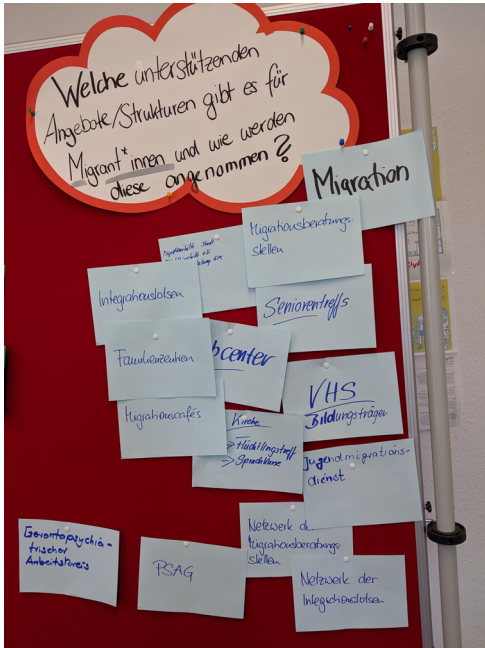 Welche unterstützenden
Angebote/Strukturen gibt es für
Migrant*innen und wie werden
diese angenommen?
Migration
Migrationsberatungs-
stellen
Integrationslotsen
Seniorentreffs
Familienzentren
bcenter
VHS
Bildungsträger
Migrationscafés
Kirche
→ Flüchtlingstreff
→ Sprachkurse
Jugendmigrations-
dienst
Netzwerk d
Migrationsberatungs-
stellen
Gerontopsychia-
trischer
Arbeitskreis
PSAG
Netzwerk der
Integrationslotsen